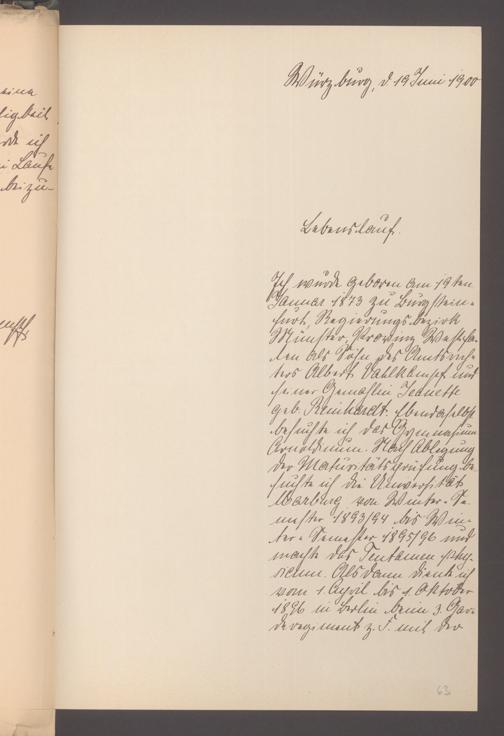 eine
ich
Laufe
beizu-
Würzburg, d. 19 Juni 1900
Lebenslauf.
Ich wurde geboren am 19ten
Januar 1873 zu Burgstein-
furt, Regierungsbezirk
Münster, Provinz Westfa-
len als Sohn des Amtsrich-
ters Albert Vahlkampf und
seiner Gemahlin Jeanette
geb. Reinhardt. Ebendaselbst
besuchte ich das Gymnasium
Arnoldinum. Nach Ablegung
der Maturitätsprüfung be-
suchte ich die Universität
Marburg von Winter-Se-
mester 1893/94 bis Win-
ter-Semester 1895/96 und
machte das Tentamen phy-
sicum. Alsdann diente ich
vom 1. April bis 1. Oktober
1896 in Berlin beim 3. Gar-
deregiment z. F. mit der
63